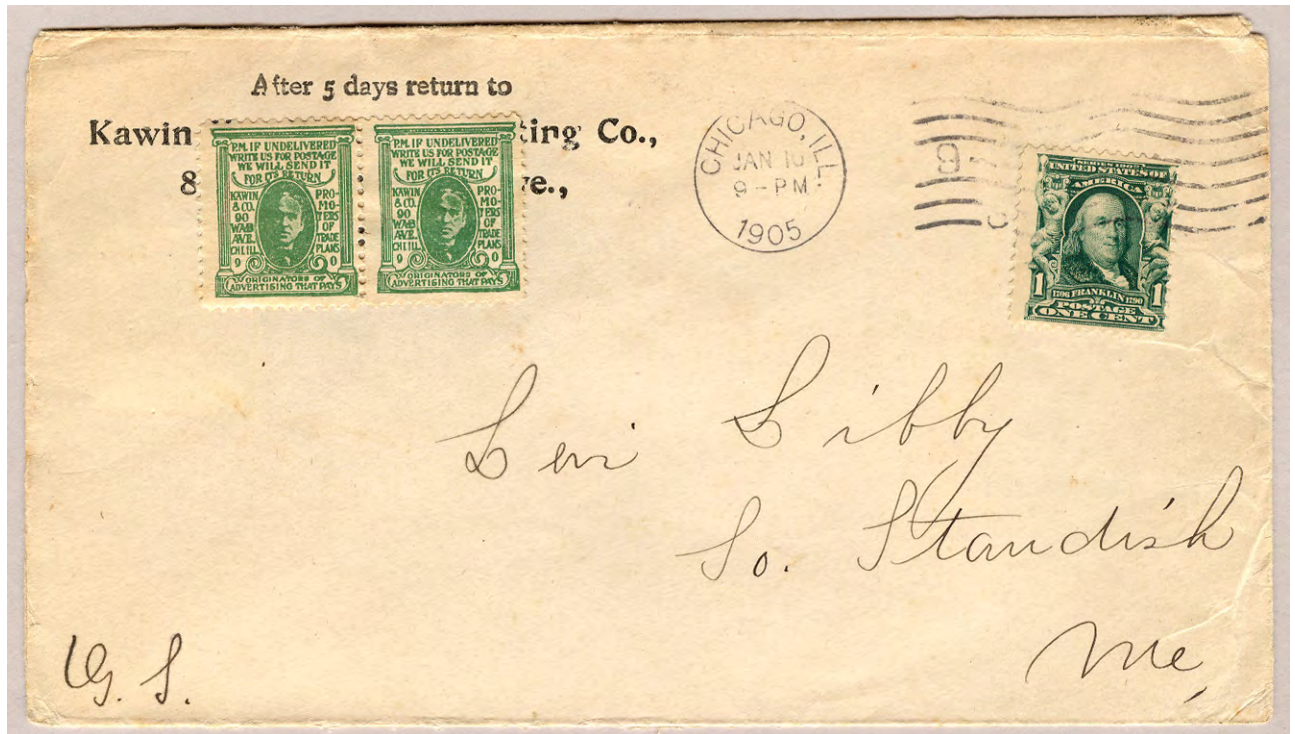 After 5 days return to
Kawin Co.,
P.M. IF UNDELIVERED
WRITE US FOR POSTAGE
WE WILL SEND IT
FOR ITS RETURN
KAWIN & CO. 90 WAB. AVE. CHI. ILL.
PROMOTERS OF TRADE PLANS
9 0
ORIGINATORS OF
ADVERTISING THAT PAYS
P.M. IF UNDELIVERED
WRITE US FOR POSTAGE
WE WILL SEND IT
FOR ITS RETURN
KAWIN & CO. 90 WAB. AVE. CHI. ILL.
PROMOTERS OF TRADE PLANS
9 0
ORIGINATORS OF
ADVERTISING THAT PAYS
CHICAGO, ILL.
JAN 10
9-PM
1905
SERIES 1902
UNITED STATES OF
AMERICA
1 1
1706 FRANKLIN 1790
POSTAGE
ONE CENT
Levi Libby
So. Standish
Me,